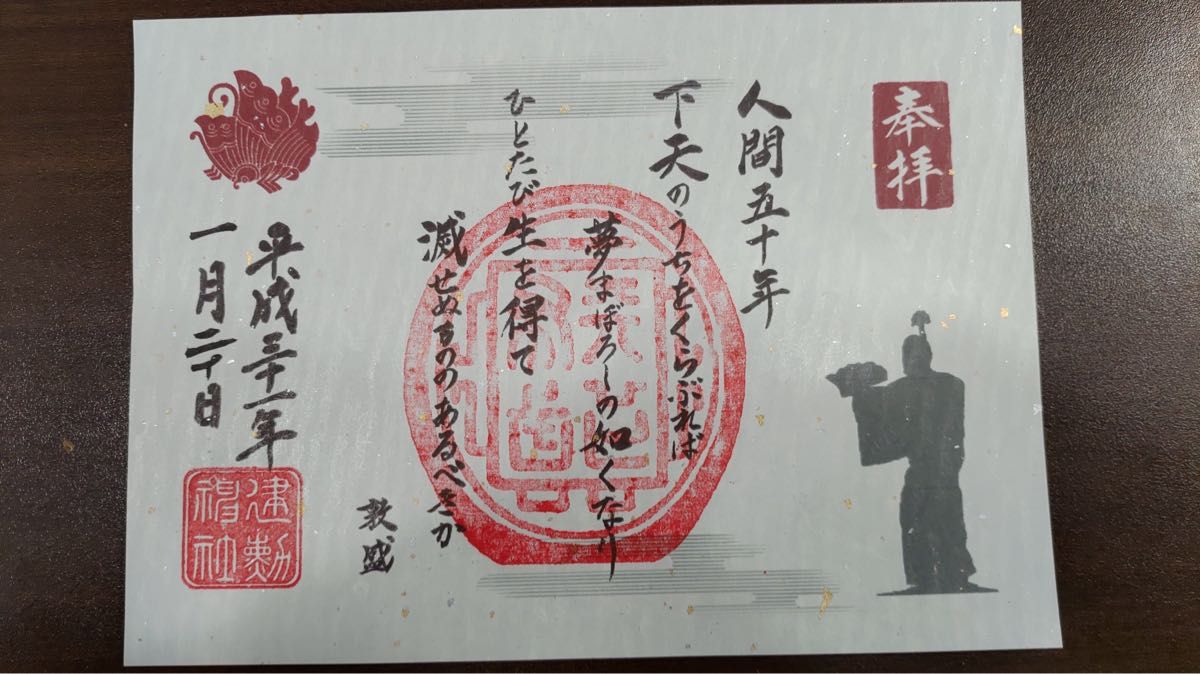 奉拝
人間五十年
下天のうちをくらぶれば
夢まぼろしの如くなり
ひとたび生を得て
滅せぬもののあるべきか
敦盛
平成三十一年
一月二十日
建勲
神社